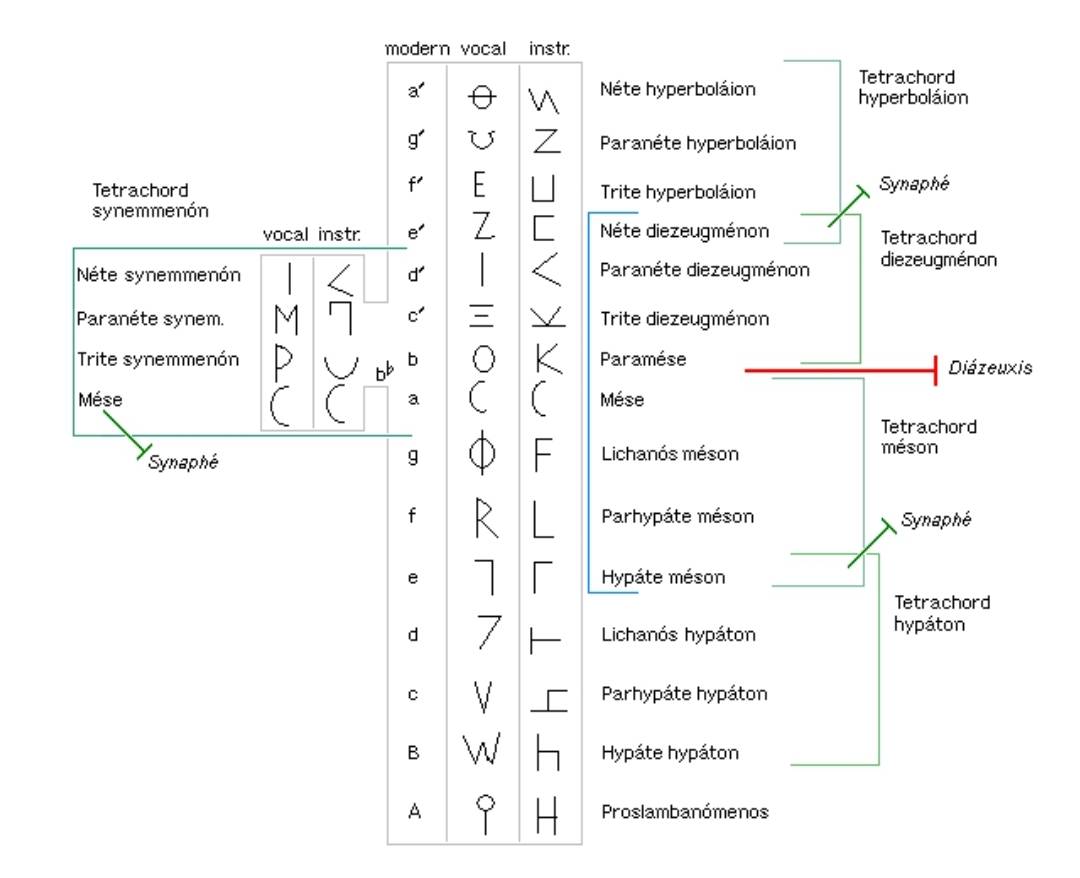 modern vocal instr.
a′ Θ Néte hyperboláion
Tetrachord
hyperboláion
g′ Z Paranéte hyperboláion
f′ E Trite hyperboláion
Synaphé
Tetrachord
synemmenón
vocal instr.
e′ Z Néte diezeugménon
Tetrachord
diezeugménon
Néte synemmenón I <
d′ I < Paranéte diezeugménon
Paranéte synem. M
c′ Ξ Trite diezeugménon
Trite synemmenón P
b♭
b O K Paramése
Diázeuxis
Mése C C
a C C Mése
Synaphé
Tetrachord
méson
g Φ F Lichanós méson
f R L Parhypáte méson
Synaphé
e Γ Hypáte méson
Tetrachord
hypáton
d 7 Lichanós hypáton
c V Parhypáte hypáton
B W h Hypáte hypáton
A H Proslambanómenos